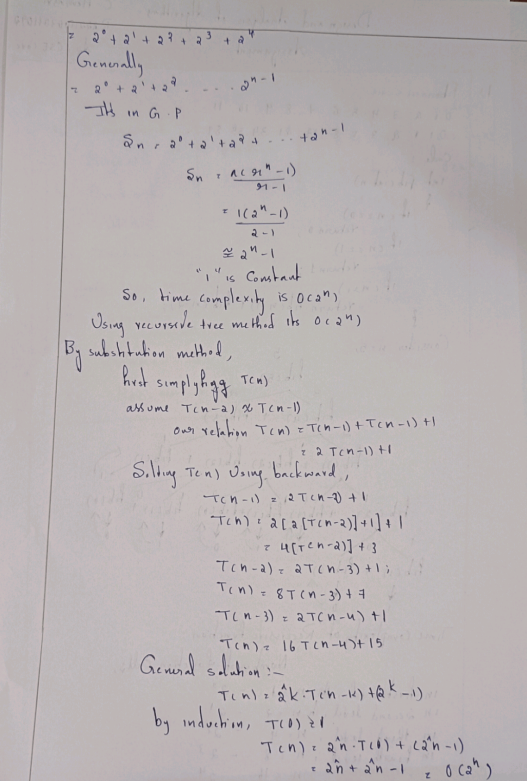 = 2⁰ + 2¹ + 2² + 2³ + 2⁴
Generally
= 2⁰ + 2¹ + 2² . . . . . 2ⁿ⁻¹
Its in G.P
Sn = 2⁰ + 2¹ + 2² + . . . + 2ⁿ⁻¹
Sn = a(rⁿ-1)
r-1
= 1(2ⁿ-1)
2-1
≅ 2ⁿ-1
"1" is Constant
So, time complexity is O(2ⁿ)
Using recursive tree method its O(2ⁿ)
By substitution method,
first simplyfigg T(n)
assume T(n-2) ≈ T(n-1)
our relation T(n) = T(n-1) + T(n-1) + 1
= 2T(n-1)+1
Solving T(n) Using backward,
T(n-1) = 2T(n-2) + 1
T(n) = 2[2[T(n-2)]+1] + 1
= 4[T(n-2)] + 3
T(n-2) = 2T(n-3) + 1;
T(n) = 8T(n-3) + 7
T(n-3) = 2T(n-4) + 1
T(n) = 16T(n-4) + 15
General solution :-
T(n) = 2^k.T(n-k) + (2^k-1)
by induction, T(0) = 1
T(n) = 2^n.T(0) + (2^n-1)
= 2^n + 2^n - 1 = O(2ⁿ)